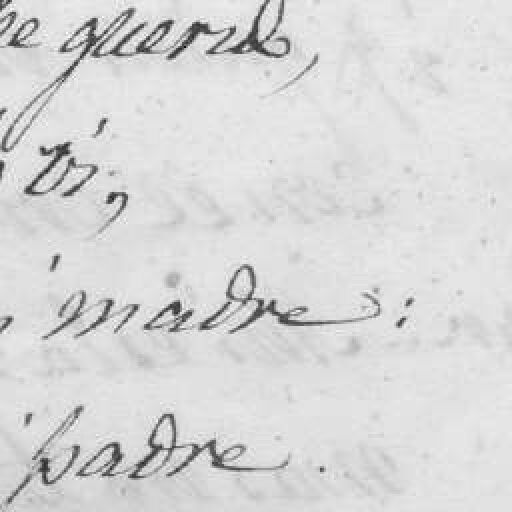 he querido,
ti,
madre:
padre.